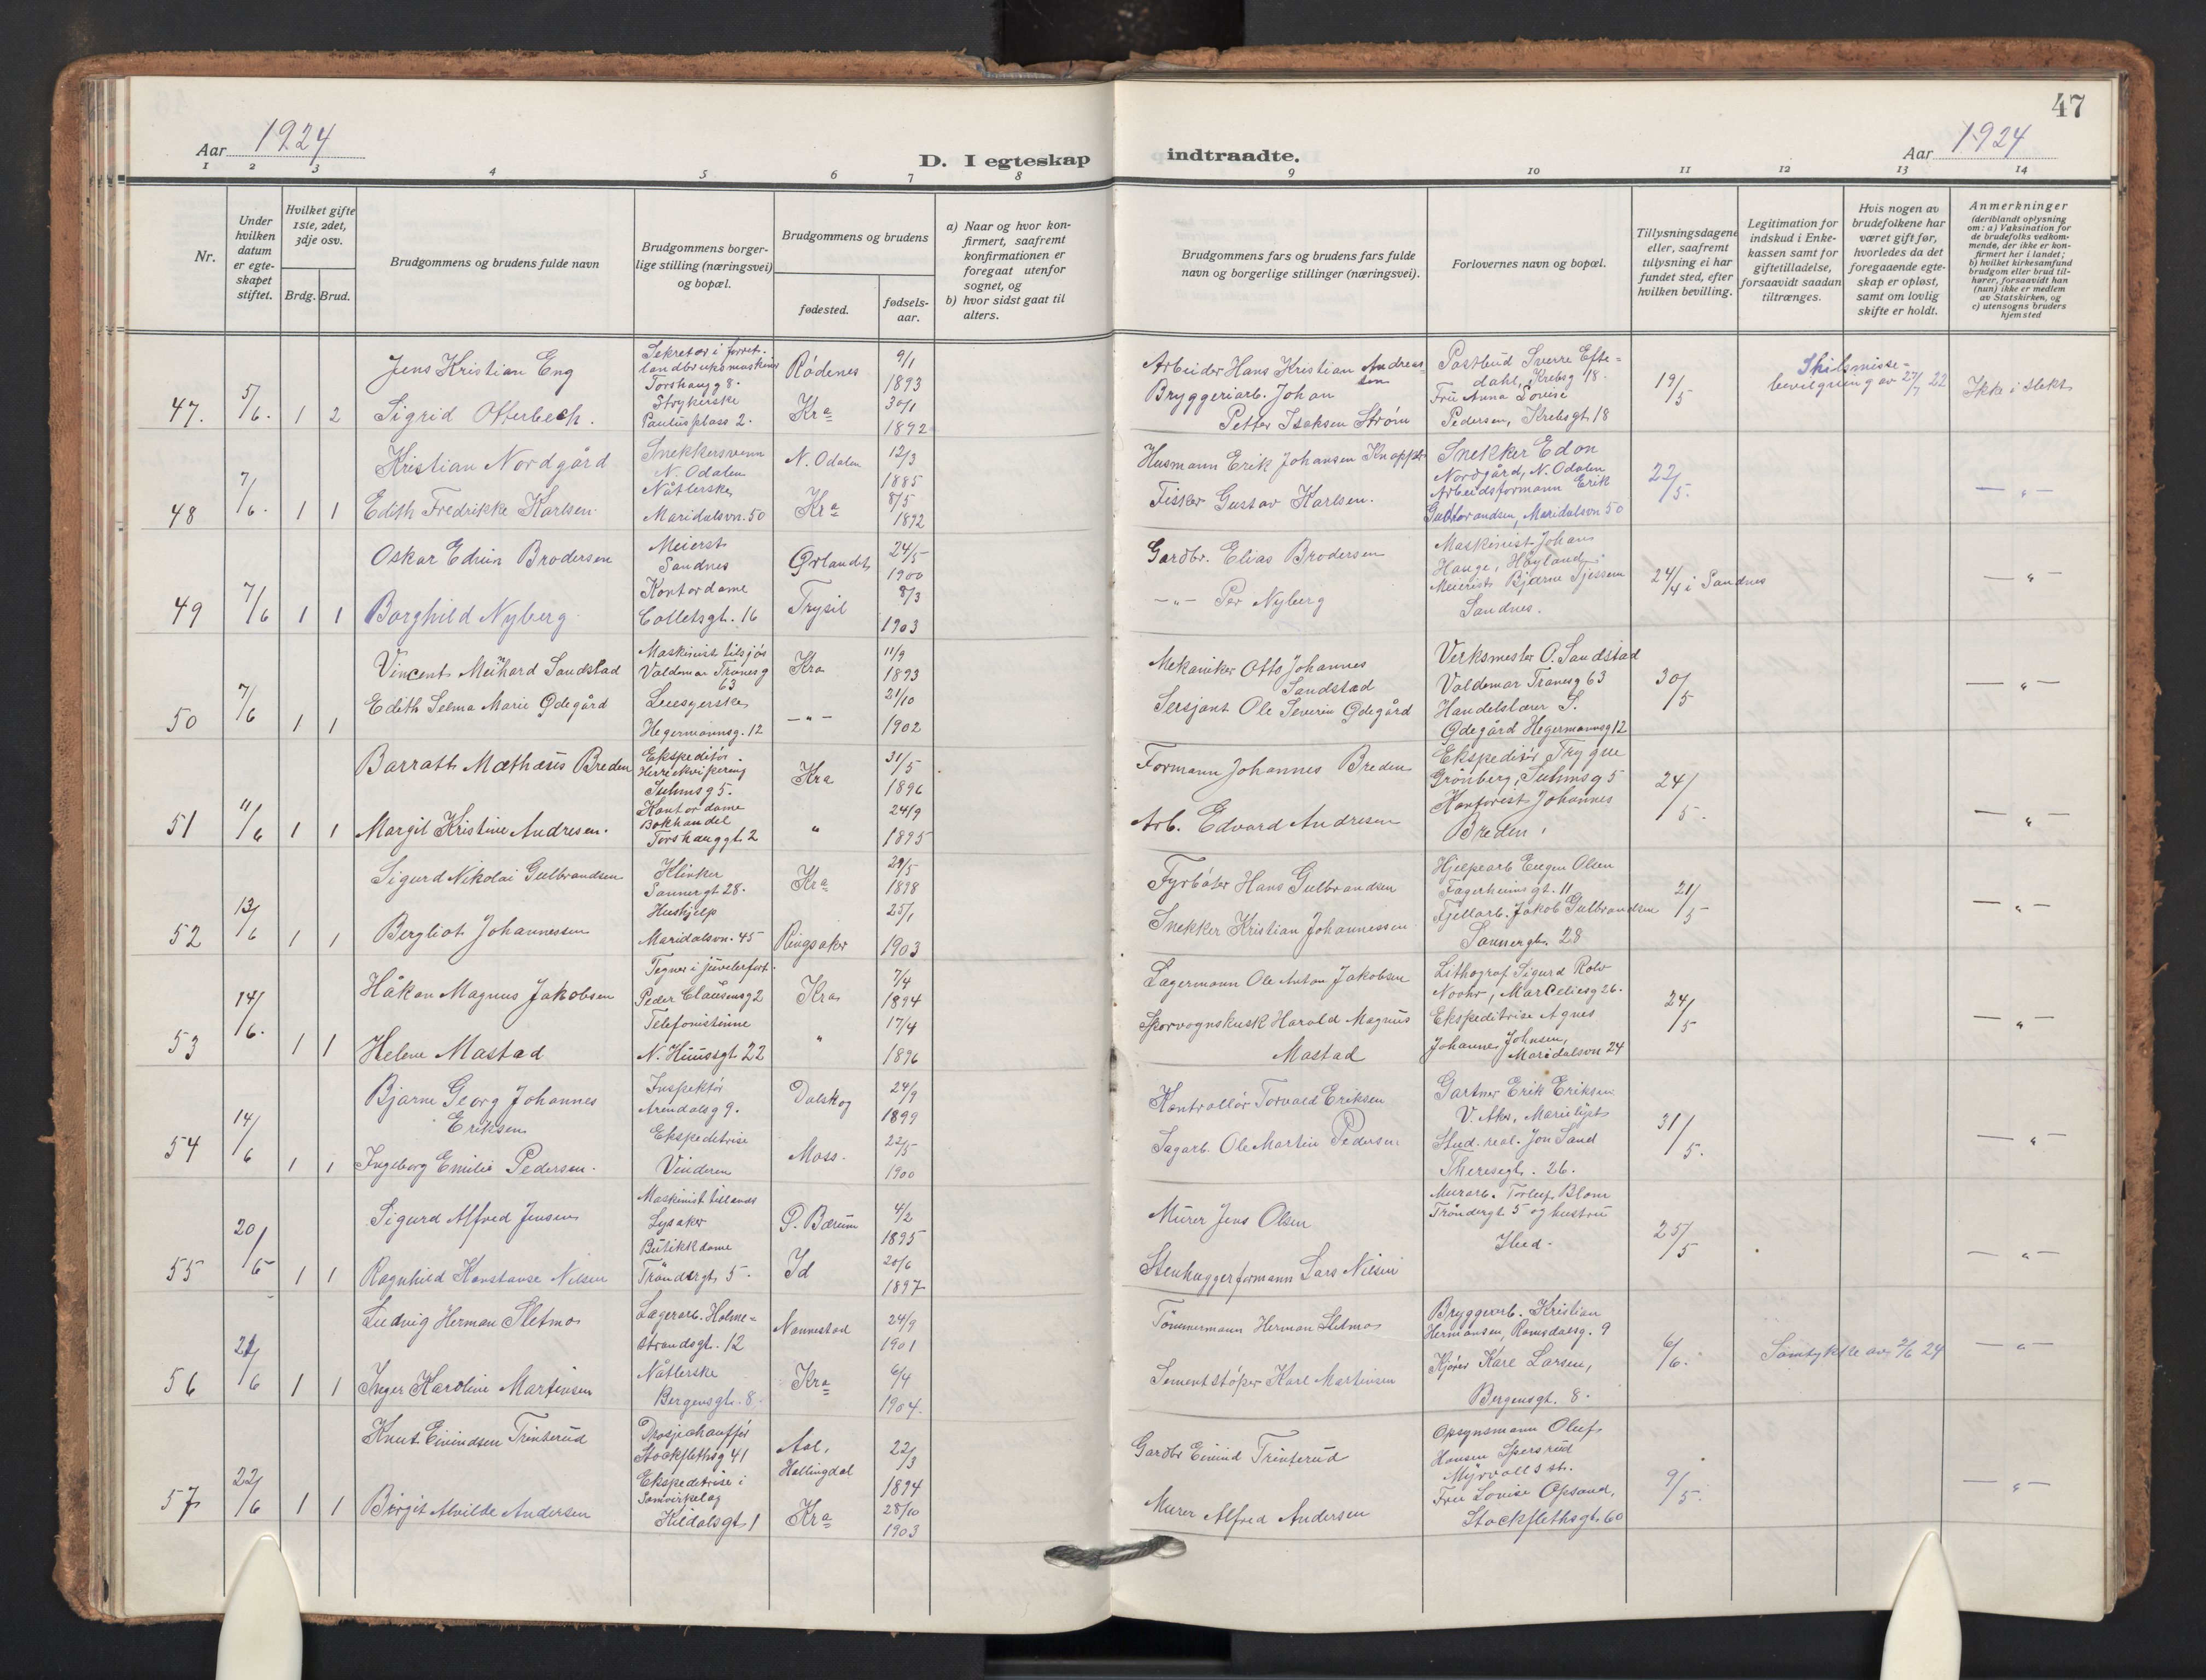 47
Aar 1924
D. I egteskap indtraadte.
Aar 1924
1 2 3 4 5 6 7 8 9 10 11 12 13 14
Nr.
Under hvilken datum er egteskapet stiftet.
Hvilket gifte 1ste, 2det, 3dje osv.
Brdg. Brud.
Brudgommens og brudens fulde navn
Brudgommens borgerlige stilling (næringsvei) og bopæl.
Brudgommens og brudens
fødested.
fødselsaar.
a) Naar og hvor konfirmert, saafremt konfirmationen er foregaat utenfor sognet, og
b) hvor sidst gaat til alters.
Brudgommens fars og brudens fars fulde navn og borgerlige stillinger (næringsvei).
Forlovernes navn og bopæl.
Tillysningsdagene eller, saafremt tillysning ei har fundet sted, efter hvilken bevilling.
Legitimation for indskud i Enkekassen samt for giftetilladelse, forsaavidt saadan tiltrænges.
Hvis nogen av brudefolkene har været gift før, hvorledes da det foregaaende egteskap er opløst, samt om lovlig skifte er holdt.
Anmerkninger
(deriblandt oplysning om: a) Vaksination for de brudefolks vedkommende, der ikke er konfirmert her i landet;
b) hvilket kirkesamfund brudgom eller brud tilhører, forsaavidt han (hun) ikke er medlem av Statskirken, og
c) utensogns bruders hjemsted
47. 5/6. 1 2
Jens Kristian Eng
Sekretær i forret. landbruksmaskiner Torshaugg 8.
Rödenes 9/1 1893
Arbeider Hans Kristian Andreassen
Postbud Sverre Eftedahl, Krebsg 18.
19/5
Skilsmissebevilgning av 27/7 22
Ikke i slekt
Sigrid Otterbech.
Strykerske Paulus plass 2.
Kra 30/1 1892
Bryggeriarb. Johan Petter Isaksen Strøm
Fru Anna Lovise Pedersen, Krebsgt 18
48 7/6. 1 1
Kristian Nordgård
Snekkersvenn N. Odalen
N. Odalen 12/3 1885
Husmann Erik Johansen Knapper
Snekker Edon Nordgård, N. Odalen
22/5.
— " —
Edith Fredrikke Karlsen.
Nåtlerske Maridalsvn. 50
Kra 8/5 1892
Fisker Gustav Karlsen.
Arbeidsformann Erik Gulbrandsen, Maridalsvn 50
49 7/6 1 1
Oskar Edvin Brodersen
Meierist Sandnes
Ørlandet 24/5 1900
Gardbr. Elias Brodersen
Maskinist Johan Hauge, Høyland
24/4 i Sandnes
— " —
Borghild Nyberg
Kontordame Colletsgt. 16
Trysil 8/3 1903
— " — Per Nyberg
Meierist Bjarne Tjessem Sandnes.
50 7/6 1 1
Vincent Meihard Sandstad
Maskinist tilsjøs Valdemar Tranesg 63
Kra 11/9 1893
Mekaniker Otto Johannes Sandstad
Verksmester O. Sandstad Valdemar Tranesg 63
30/5
— " —
Edith Selma Marie Ødegård
Hegermannsg. 12
— " — 21/10 1902
Sersjant Ole Severin Ødegård
Handelslærer S. Ødegård Hegermannsg 12
51 11/6 1 1
Barratt Mathæus Breden
Ekspeditör Herreekvipering Suhmsg 5.
Kra 31/5 1896
Formann Johannes Breden
Ekspeditør Trygve Grönberg, Suhmsg 5
24/5.
— " —
Margit Kristine Andresen.
Kontordame Bokhandel Torshauggt 2
" 24/9 1895
Arb. Edvard Andresen
Kontorist Johannes Breden
52 13/6 1 1
Sigurd Nikolai Gulbrandsen
Klinker Sannergt 28.
Kra 29/5 1898
Fyrböter Hans Gulbrandsen
Hjelpearb Eugen Olsen Fagerheimsgt. 11
21/5
— " —
Bergliot Johannessen
Hushjelp Maridalsvn. 45
Ringsaker 25/1 1903
Snekker Kristian Johannessen
Fjellarb. Jakob Gulbrandsen Sannergt. 28
53 14/6. 1 1
Håkon Magnus Jakobsen
Tegner i juvelerforr. Peder Claüsensg 2
Kra 7/4 1894
Lagermann Ole Anton Jakobsen
Lithograf Sigurd Rolv Noohr, Marceliesg 26.
24/5
— " —
Helene Mastad
Telefonistinne N. Huusgt 22
" 17/4 1896
Sporvognskusk Harald Magnus Mastad
Ekspeditrise Agnes Johanne Johnsen, Maridalsvn 24
54 14/6 1 1
Bjarne Georg Johannes Eriksen
Inspektör Arendalsg 9.
Dalskog 24/9 1899
Kontrollör Torvald Eriksen
Gartner Erik Eriksen V. Aker, Marielyst
31/5.
— " —
Ingeborg Emilie Pedersen.
Ekspeditrise Vinderen
Moss. 22/5 1900
Sagarb. Ole Martin Pedersen
Stud. real. Jon Sand Theresegt. 26.
55 20/6 1 1
Sigurd Alfred Jensen
Maskinist tillands Lysaker
Ø. Bærum 4/2 1895
Murer Jens Olsen
Murarb. Torleif Blom Tröndergt 5 og hustru Ibid.
25/5
— " —
Ragnhild Konstanse Nilsen
Butikkdame Tröndergt 5.
Id 20/6 1897
Stenhuggerformann Lars Nilsen
56 21/6 1 1
Ludvig Herman Sletmo
Lagerarb. Holmestrandsgt. 12
Nannestad 24/9 1901
Tömmermann Herman Sletmo
Bryggerarb. Kristian Hermansen, Romsdalsg. 9
6/6.
Samtykke av 2/6 24
— " —
Inger Karoline Martinsen
Nåtlerske Bergensgt. 8.
Kra 6/4 1904.
Sementstöper Karl Martinsen
Kjörer Karl Larsen, Bergensgt. 8.
57 22/6 1 1
Knut Eivindsen Trinterud
Drosjechaufför Stockflethsg 41
Aal, Hallingdal 22/3 1894
Gardbr Eivind Trinterud
Opsynsmann Oluf Hansen Spersrud Myrvoll st.
9/5.
— " —
Birgit Alvilde Andersen
Ekspeditrise i Samvirkelag Kildalsgt 1
Kra 28/10 1903
Murer Alfred Andersen
Fru Lovise Opsand, Stockflethsgt. 60